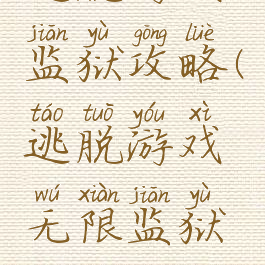 jiān yù gōng lüè
监狱攻略(
táo tuō yóu xì
逃脱游戏
wú xiàn jiān yù
无限监狱